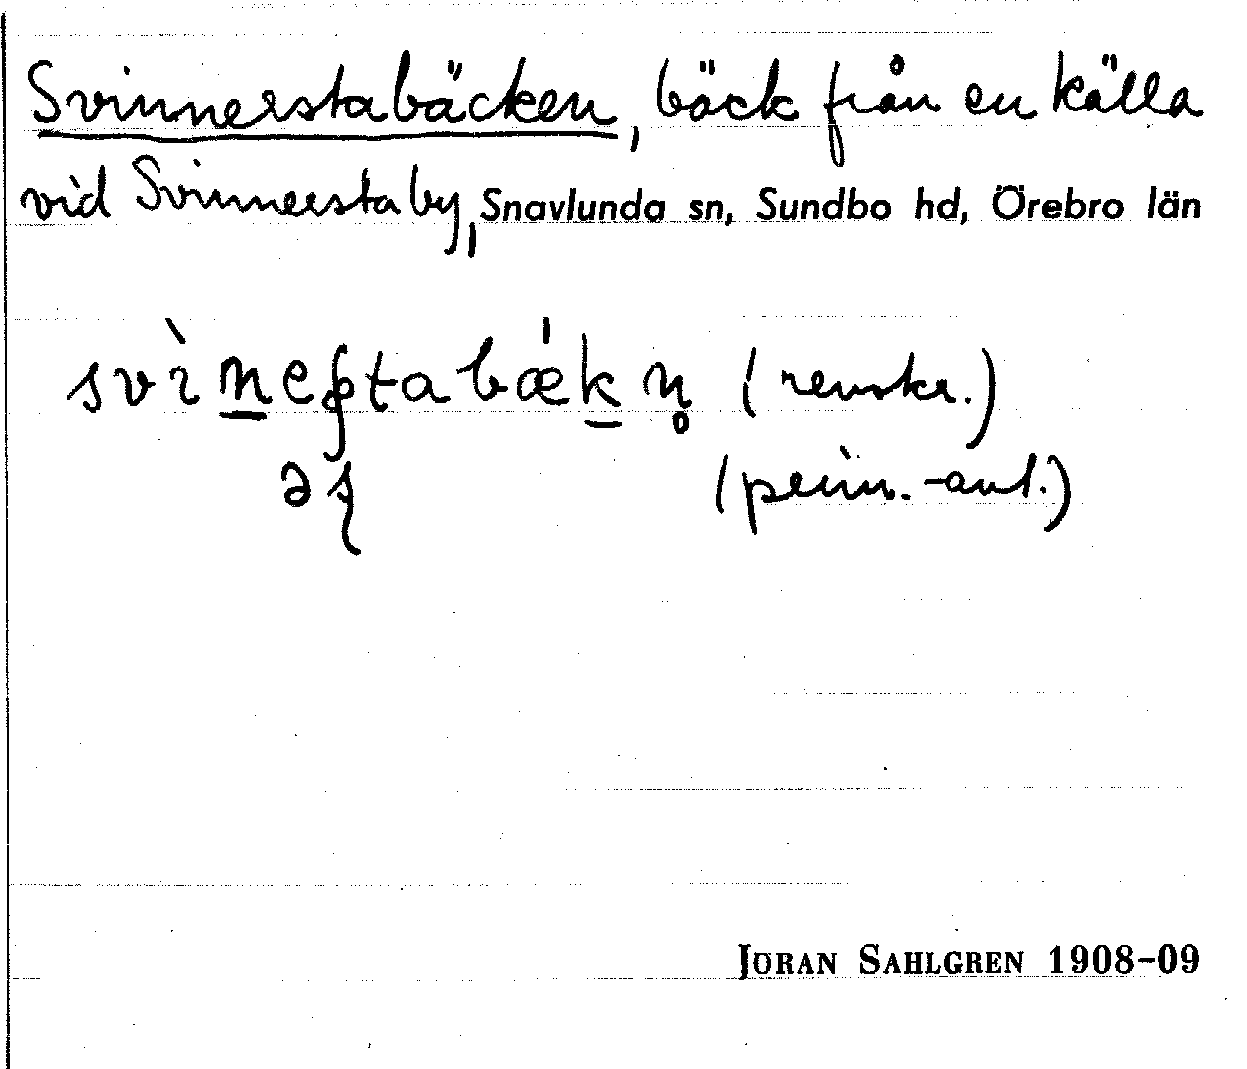 Svinnerstabäcken, bäck från en källa
vid Svinnersta by, Snavlunda sn, Sundbo hd, Örebro län
svìn̲eʂtabǽk̲n̥ (renskr.)
əʂ (prim.-ant.)
JORAN SAHLGREN 1908-09